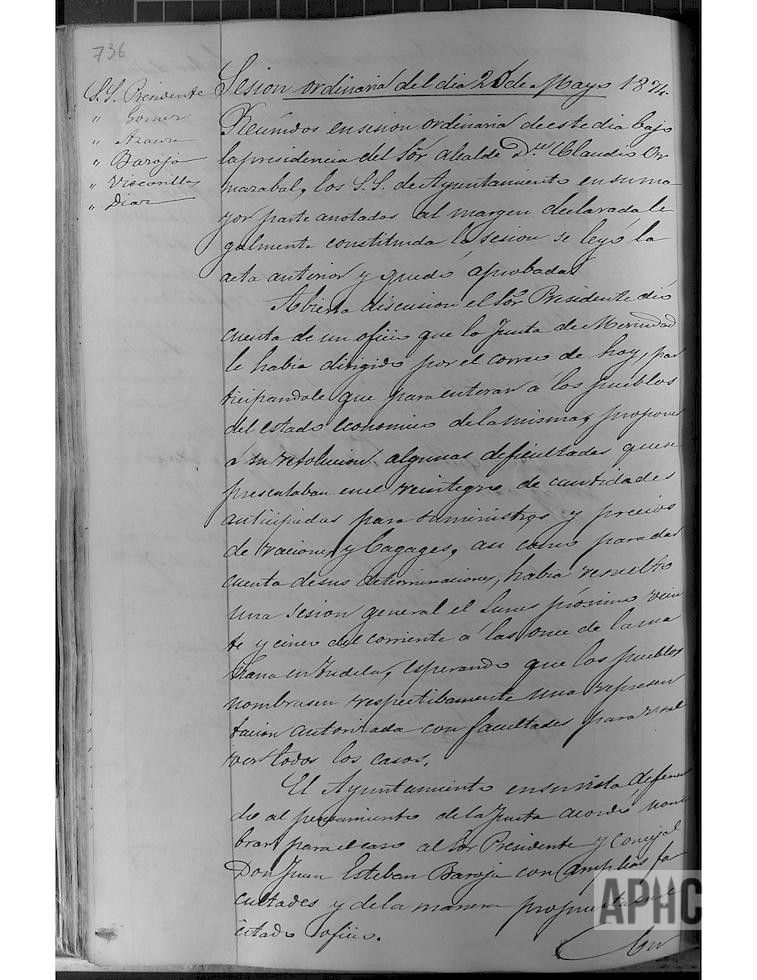 736
S.S. Presidente
" Gomez
" Azanza
" Baroja
" Visconillas
" Diaz
Sesion ordinaria del dia 2 de Mayo 1874.
Reunidos en sesion ordinaria de este dia bajo
la presidencia del Sor Alcalde Dn Claudio Or
mazabal, los S.S. de Ayuntamiento en su ma
yor parte anotados al margen declarada le
galmente constituida la sesion se leyó la
acta anterior y quedó aprobada
Abierta discusion el Sor Presidente dió
cuenta de un oficio que la Junta de Merindad
le habia dirigido por el correo de hoy, par
ticipandole que para enterar á los pueblos
del estado economico de la misma, proponer
á su resolucion algunas deficultades que se
presentaban en el reintegro de cantidades
anticipadas para suministros y precios
de raciones y bagages, asi como para dar
cuenta de sus determinaciones, habia resuelto
una sesion general el Lunes próximo vein
te y cinco del corriente a las once de la ma
ñana en Tudela, esperando que los pueblos
nombrasen respectibamente una represen
tacion autorizada con facultades para resol
ver todos los casos.
El Ayuntamiento en su vista, defirien
do al pensamiento de la Junta acordó nom
brar para el caso al Sor Presidente y Concejal
Don Juan Esteban Baroja con amplias fa
cultades y de la manera propuesta en el
citado oficio.
APHC